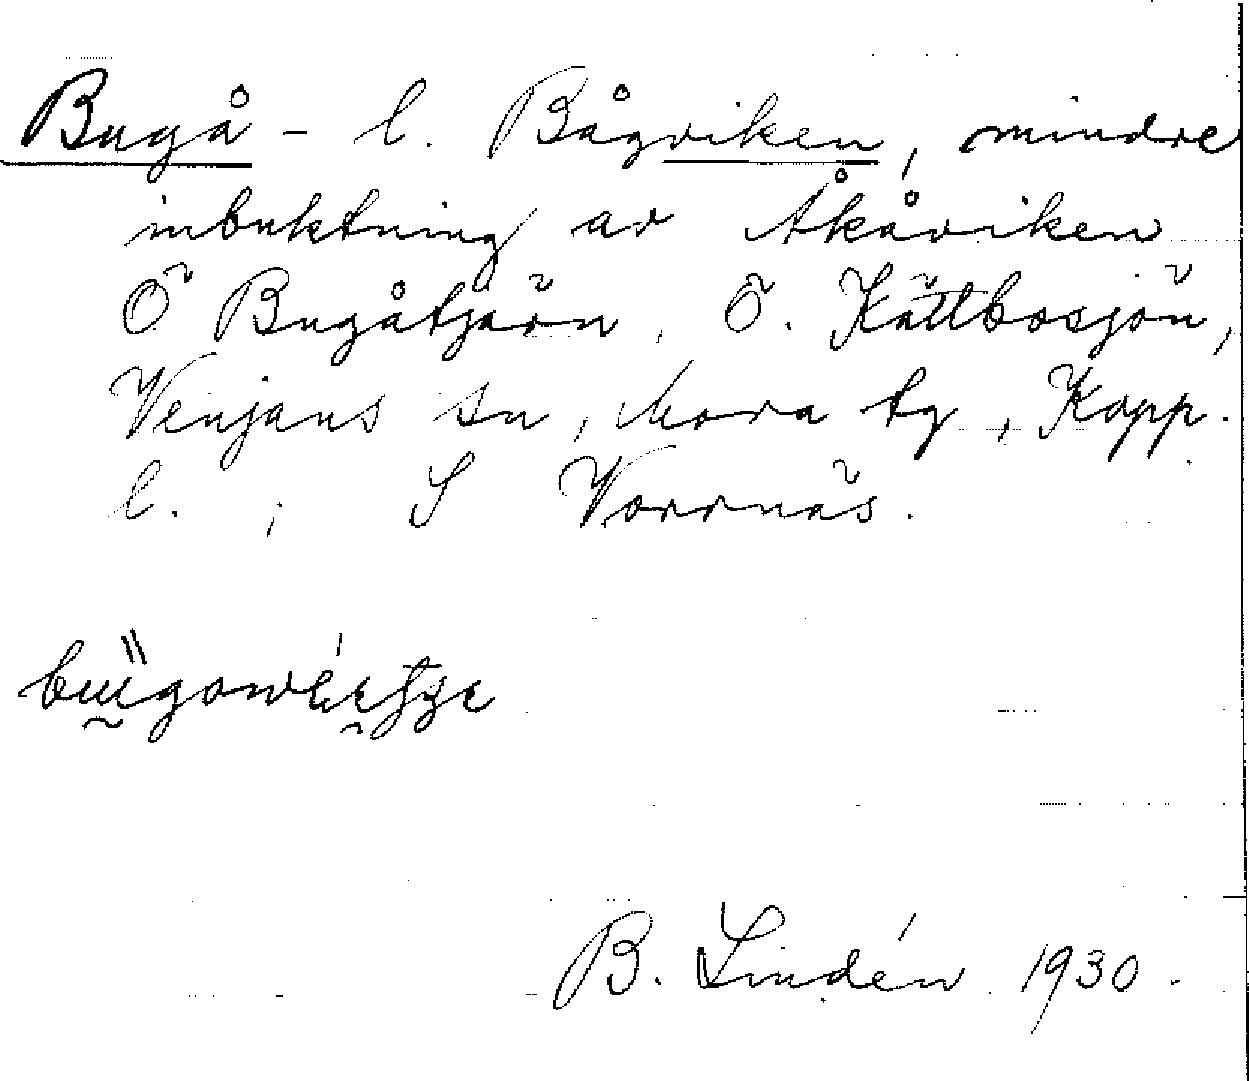 Bugå- l. Bågviken, mindre
inbuktning av Åkåviken
Ö Bugåtjärn, Ö. Kättbosjön,
Venjans sn, Mora tg, Kopp.
l. ; S Vorrnäs.
B. Lindén 1930.